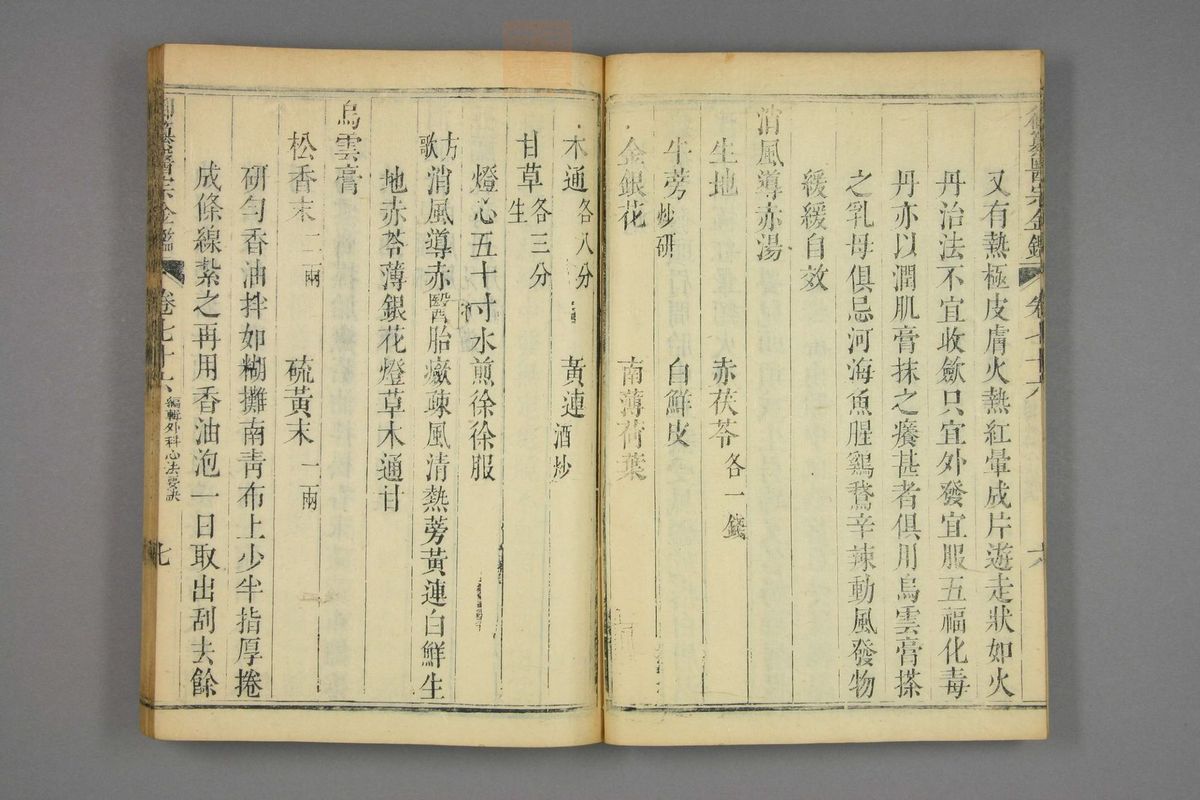 御纂醫宗金鑑 卷七十六 六
又有熱極皮膚火熱紅暈成片遊走狀如火
丹治法不宜收歛只宜外發宜服五福化毒
丹亦以潤肌膏抹之癢甚者俱用烏雲膏搽
之乳母俱忌河海魚腥鷄鵞辛辣動風發物
緩緩自效
消風導赤湯
生地 赤茯苓各一錢
牛蒡炒研 白鮮皮
金銀花 南薄荷葉
木通各八分 黃連酒炒
甘草生各三分
燈心五十寸水煎徐徐服
方歌 消風導赤醫胎㿀疎風清熱蒡黃連白鮮生
地赤苓薄銀花燈草木通甘
烏雲膏
松香末二兩 硫黃末一兩
研勻香油拌如糊攤南青布上少半指厚捲
成條線紮之再用香油泡一日取出刮去餘
御纂醫宗金鑑 卷七十六 編輯外科心法要訣 七